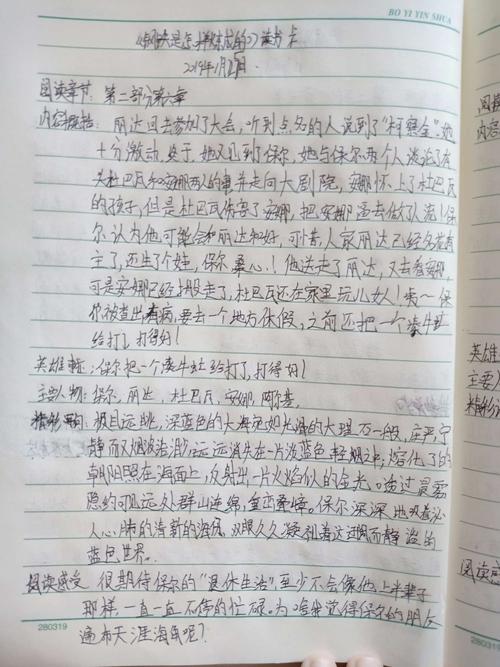 BO YI YIN SHUA
《钢铁是怎样炼成的》读书卡
2019年1月21日
阅读章节：第二部分第六章
内容概括：丽达回去参加了大会，听到点名的人说到了“柯察金”她
十分激动，终于，她又见到保尔，她与保尔两个人谈论了有
关杜巴瓦和安娜两人的事并走向大剧院，安娜怀上了杜巴瓦
的孩子，但是杜巴瓦伤害了安娜，把安娜逼去做了人流！保
尔认为他可能会和丽达和好，可惜，人家丽达已经名花有
主了，还生了个娃，保尔 ！他送走了丽达，又去看安娜
可是安娜已经上班走了，杜巴瓦还在家里玩儿女人！唉～保
尔被查出有病，要去一个地方休假，之前还把一个
给打了，打得好！
英雄事迹：保尔把一个 给打了，打得好！
主要人物：保尔，丽达，杜巴瓦，安娜，阿尔焦
精彩 ：极目远眺，深蓝色的大海宛如光滑的大理石一般，庄严宁
静而又烟波浩渺，远远消失在一片淡蓝色轻烟之中，熔化了的
朝阳照在海面上，反射出一片火焰似的金光。透过晨雾
隐约可见远处群山连绵，重峦叠嶂。保尔深深地吸着沁
人心肺的清新的海风，双眼久久凝视着这 而静谧的
蓝色世界。
阅读感受 很期待保尔的“退休生活”，至少不会像他上半辈子
那样，一直一直不停的忙碌。为啥我觉得保尔的朋友
遍布天涯海角呢？
280319
阅读
内容
英雄
主要
精彩
阅读感